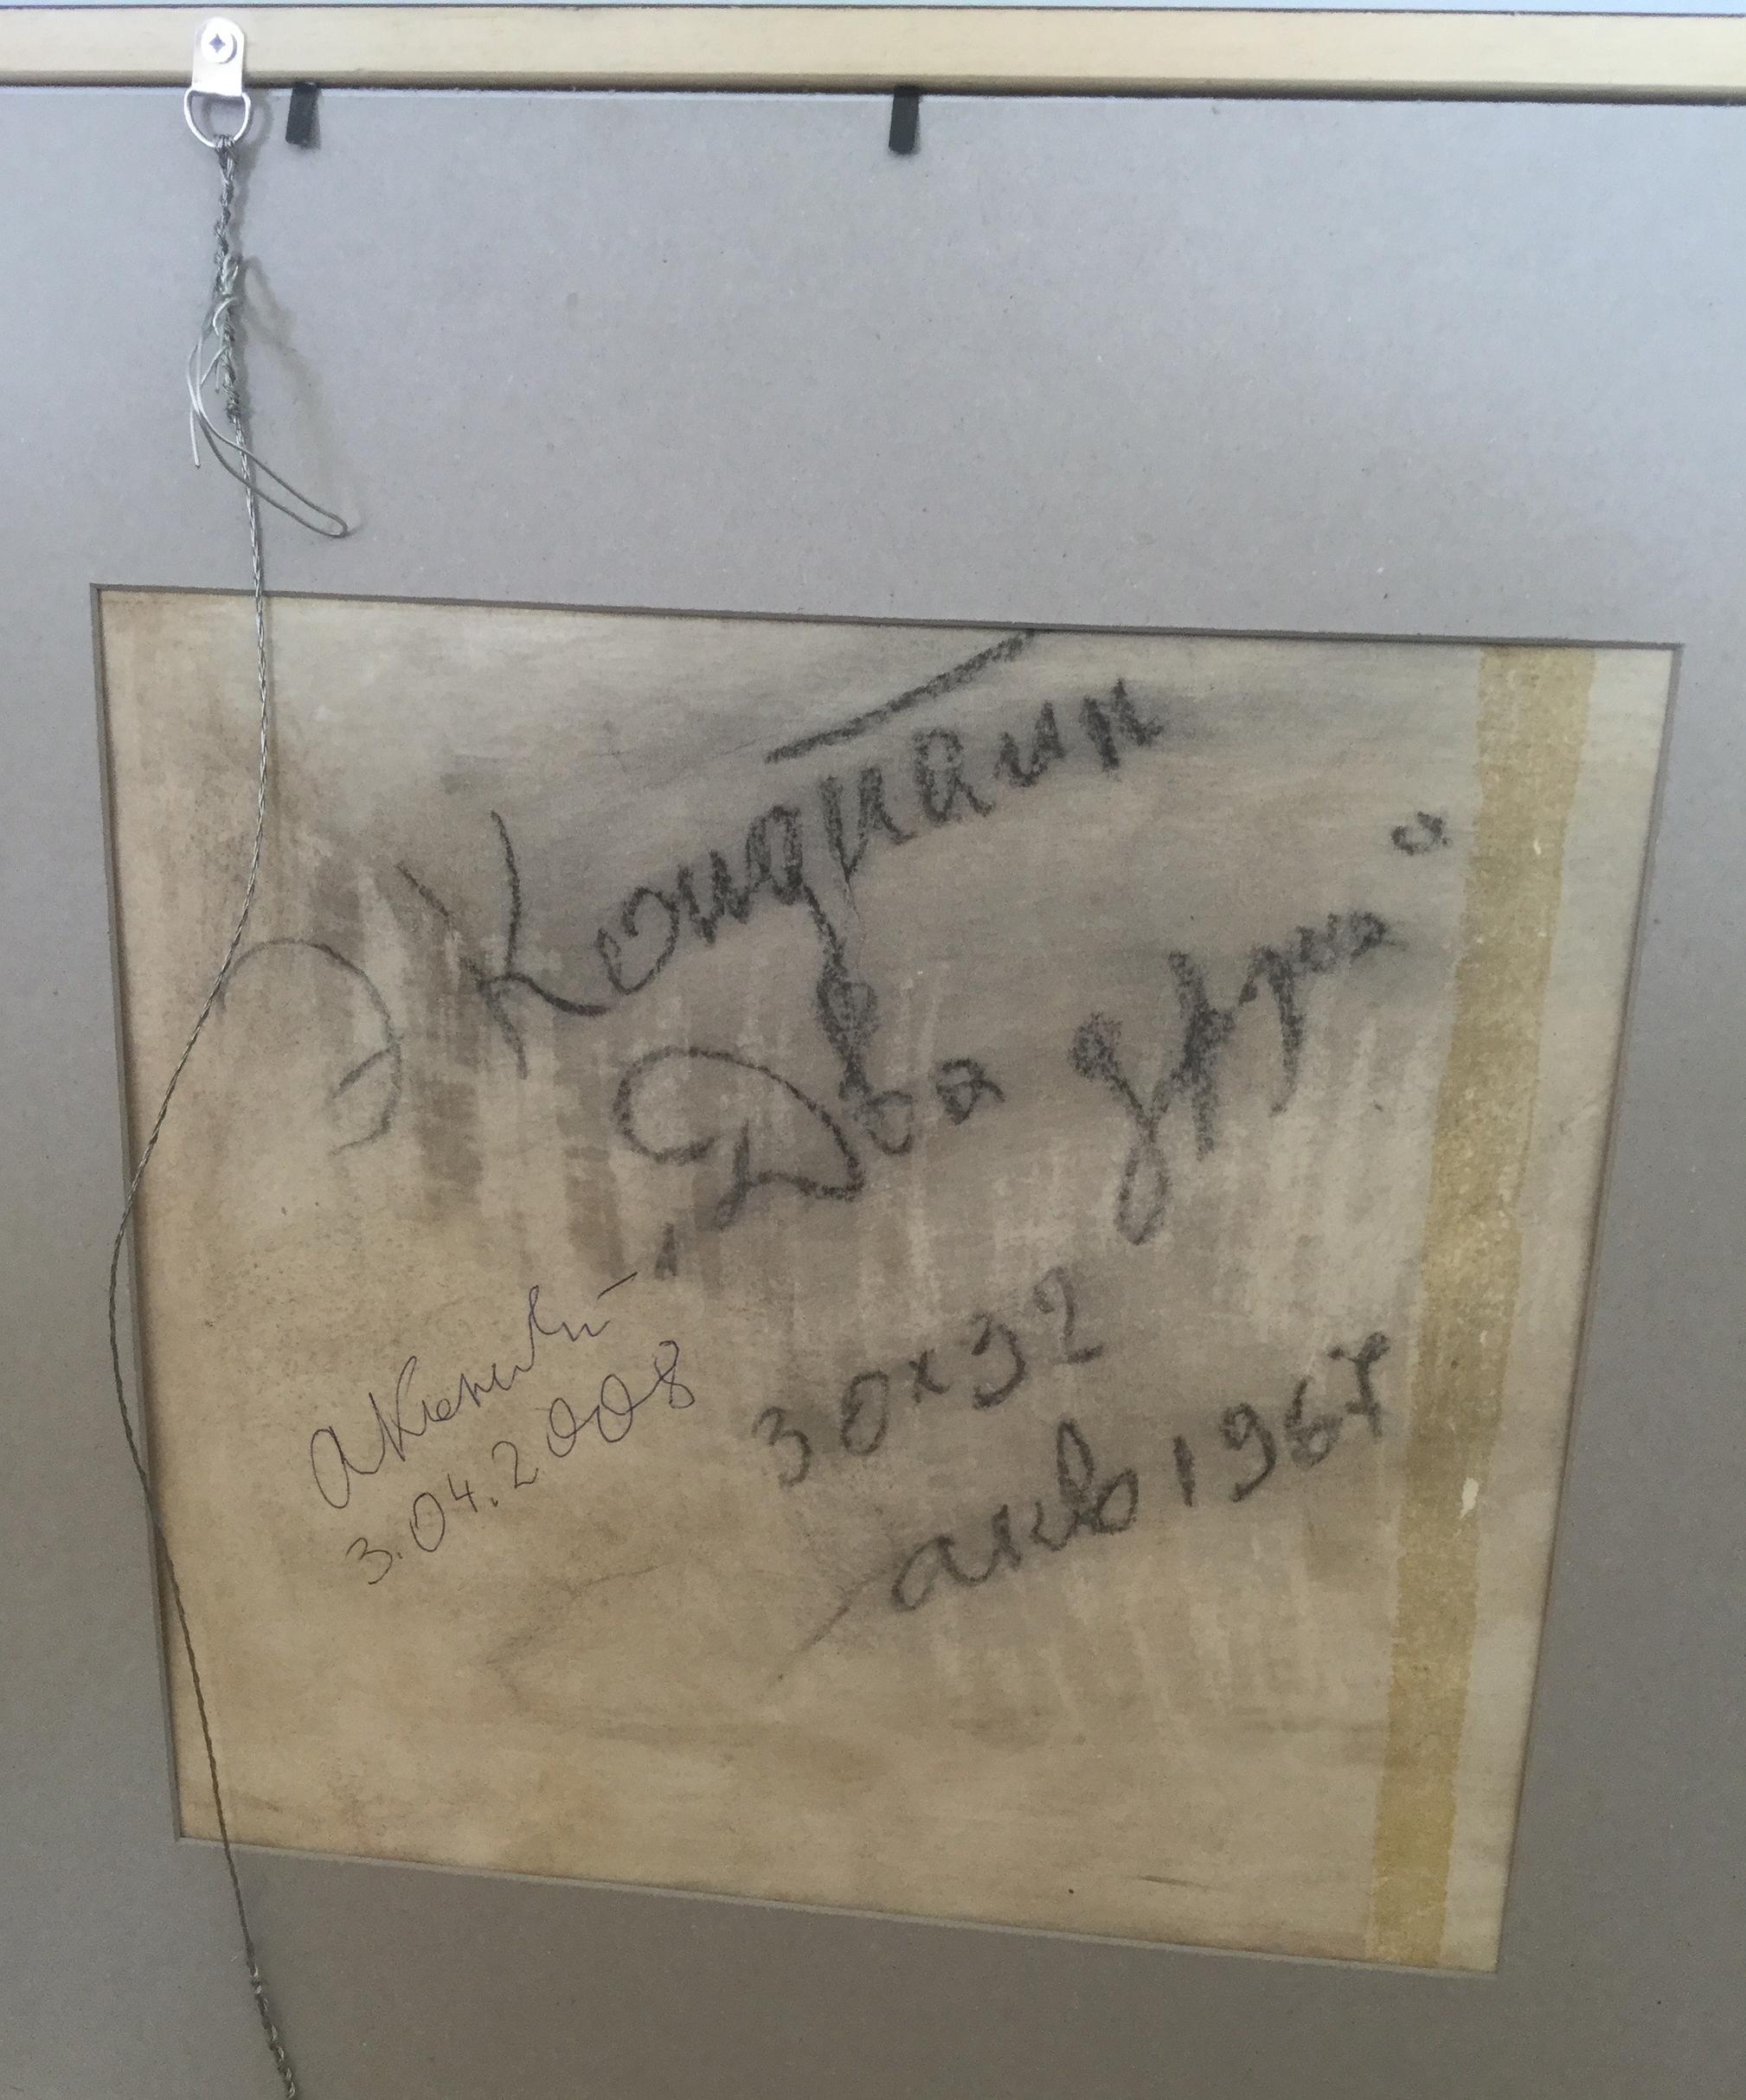 Э Кондиаин
„Два друга"
30×32
акв 1967
3.04.2008